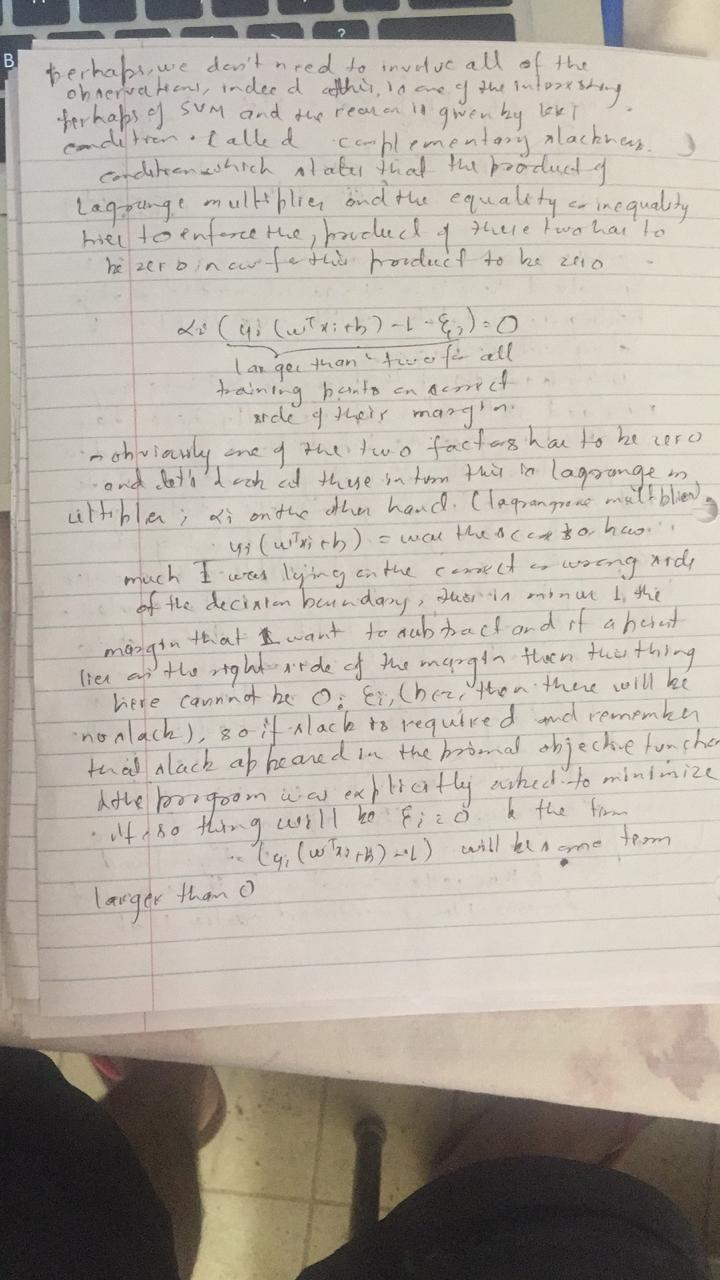 perhaps, we don't need to involve all of the
observations, indeed this, is one of the interesting
perhaps of SVM and the reason is given by KKT
condition. Called complementary slackness.
condition which states that the product of
Lagrange multiplier and the equality or inequality
to enforce the, product of these two has to
be zero in for this product to be zero
αi (yi (wᵀxi+b) -1 - ξi) = 0
larger than two for all
training points on correct
side of their margin.
obviously one of the two factors has to be zero
and let's look at these in turn this is lagrange m
ultiplier; αi on the other hand. (lagrange multiplier)
yi (wᵀxi+b) = was the
much I was lying on the correct or wrong side
of the decision boundary, this is minus 1, the
margin that I want to subtract and if a point
lies on the right side of the margin then this thing
here cannot be 0; ξi, (bcz, then there will be
no slack), so if slack is required and remember
that slack appeared in the primal objective function
&the program was explicitly asked to minimize
if so thing will be ξi = 0 & the
= (yi (wᵀxi+b) -1) will be some term
larger than 0